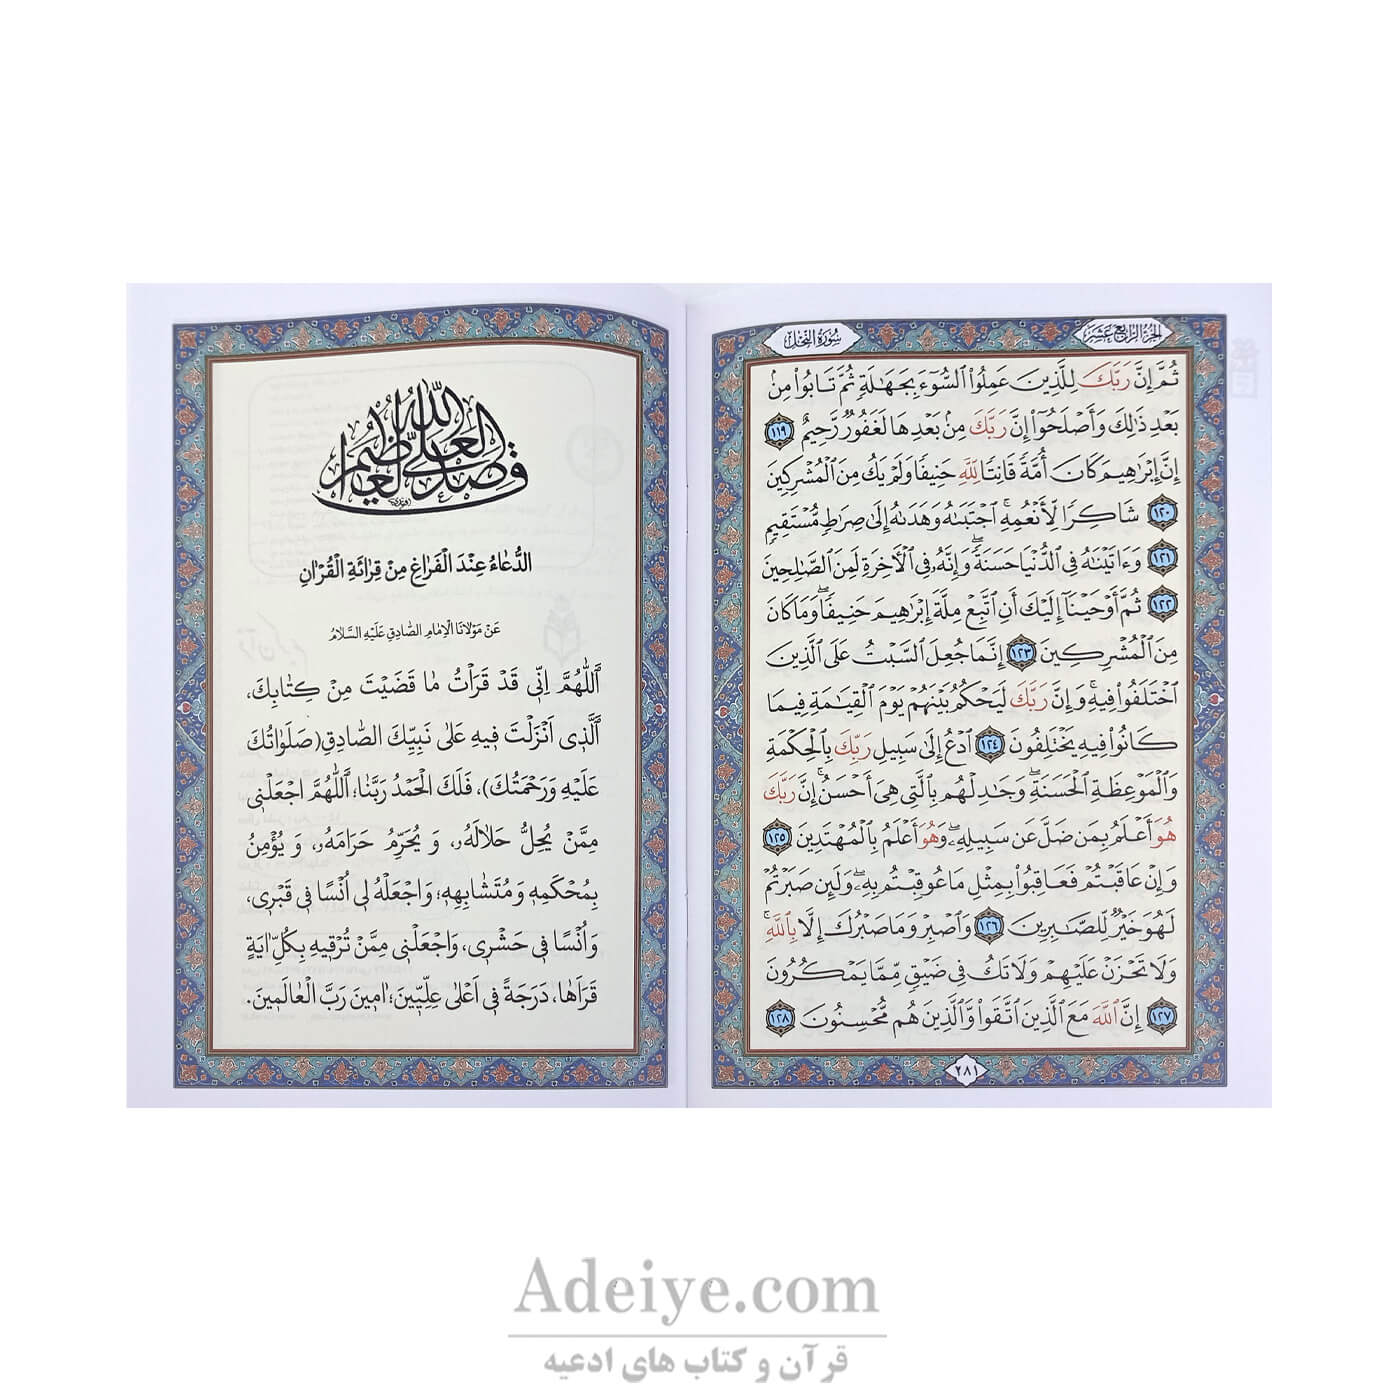 الجزء الرابع عشر
سورة النحل
ثُمَّ إِنَّ رَبَّكَ لِلَّذِينَ عَمِلُوا۟ ٱلسُّوٓءَ بِجَهَـٰلَةٍ ثُمَّ تَابُوا۟ مِنۢ
بَعْدِ ذَٰلِكَ وَأَصْلَحُوٓا۟ إِنَّ رَبَّكَ مِنۢ بَعْدِهَا لَغَفُورٌ رَّحِيمٌ ١١٩
إِنَّ إِبْرَٰهِيمَ كَانَ أُمَّةً قَانِتًا لِلَّهِ حَنِيفًا وَلَمْ يَكُ مِنَ ٱلْمُشْرِكِينَ
١٢٠ شَاكِرًا لِّأَنْعُمِهِ ۚ ٱجْتَبَىٰهُ وَهَدَىٰهُ إِلَىٰ صِرَٰطٍ مُّسْتَقِيمٍ
١٢١ وَءَاتَيْنَـٰهُ فِى ٱلدُّنْيَا حَسَنَةً ۖ وَإِنَّهُۥ فِى ٱلْـَٔاخِرَةِ لَمِنَ ٱلصَّـٰلِحِينَ
١٢٢ ثُمَّ أَوْحَيْنَآ إِلَيْكَ أَنِ ٱتَّبِعْ مِلَّةَ إِبْرَٰهِيمَ حَنِيفًا ۖ وَمَا كَانَ
مِنَ ٱلْمُشْرِكِينَ ١٢٣ إِنَّمَا جُعِلَ ٱلسَّبْتُ عَلَى ٱلَّذِينَ
ٱخْتَلَفُوا۟ فِيهِ ۚ وَإِنَّ رَبَّكَ لَيَحْكُمُ بَيْنَهُمْ يَوْمَ ٱلْقِيَـٰمَةِ فِيمَا
كَانُوا۟ فِيهِ يَخْتَلِفُونَ ١٢٤ ٱدْعُ إِلَىٰ سَبِيلِ رَبِّكَ بِٱلْحِكْمَةِ
وَٱلْمَوْعِظَةِ ٱلْحَسَنَةِ ۖ وَجَـٰدِلْهُم بِٱلَّتِى هِىَ أَحْسَنُ ۚ إِنَّ رَبَّكَ
هُوَ أَعْلَمُ بِمَن ضَلَّ عَن سَبِيلِهِۦ ۖ وَهُوَ أَعْلَمُ بِٱلْمُهْتَدِينَ ١٢٥
وَإِنْ عَاقَبْتُمْ فَعَاقِبُوا۟ بِمِثْلِ مَا عُوقِبْتُم بِهِۦ ۖ وَلَئِن صَبَرْتُمْ
لَهُوَ خَيْرٌ لِّلصَّـٰبِرِينَ ١٢٦ وَٱصْبِرْ وَمَا صَبْرُكَ إِلَّا بِٱللَّهِ ۚ
وَلَا تَحْزَنْ عَلَيْهِمْ وَلَا تَكُ فِى ضَيْقٍ مِّمَّا يَمْكُرُونَ
١٢٧ إِنَّ ٱللَّهَ مَعَ ٱلَّذِينَ ٱتَّقَوا۟ وَّٱلَّذِينَ هُم مُّحْسِنُونَ ١٢٨
٢٨١
صدق الله العلي العظيم
الدُّعٰاءُ عِنْدَ الْفَرٰاغِ مِنْ قِرٰائَةِ الْقُرْاٰنِ
عَنْ مَوْلانَا الْاِمٰامِ الصّٰادِقِ عَلَيْهِ السَّلامُ
اَللّٰهُمَّ اِنّٖى قَدْ قَرَأْتُ مٰا قَضَيْتَ مِنْ كِتٰابِكَ،
اَلَّذٖى اَنْزَلْتَ فٖيهِ عَلٰى نَبِيِّكَ الصّٰادِقِ(صَلَوٰاتُكَ
عَلَيْهِ وَرَحْمَتُكَ)، فَلَكَ الْحَمْدُ رَبَّنٰا؛ اَللّٰهُمَّ اجْعَلْنٖى
مِمَّنْ يُحِلُّ حَلالَهُۥ، وَ يُحَرِّمُ حَرَامَهُۥ، وَ يُؤْمِنُ
بِمُحْكَمِهٖ وَمُتَشٰابِهِهٖ؛ وَاجْعَلْهُ لٖى اُنْسًا فٖى قَبْرٖى،
وَاُنْسًا فٖى حَشْرٖى، وَاجْعَلْنٖى مِمَّنْ تُرْقٖيهِ بِكُلِّ اٰيَةٍ
قَرَاَهٰا، دَرَجَةً فٖى اَعْلٰى عِلِّيّٖينَ؛ اٰمٖينَ رَبَّ الْعٰالَمٖينَ.
Adeiye.com
قرآن و کتاب های ادعیه